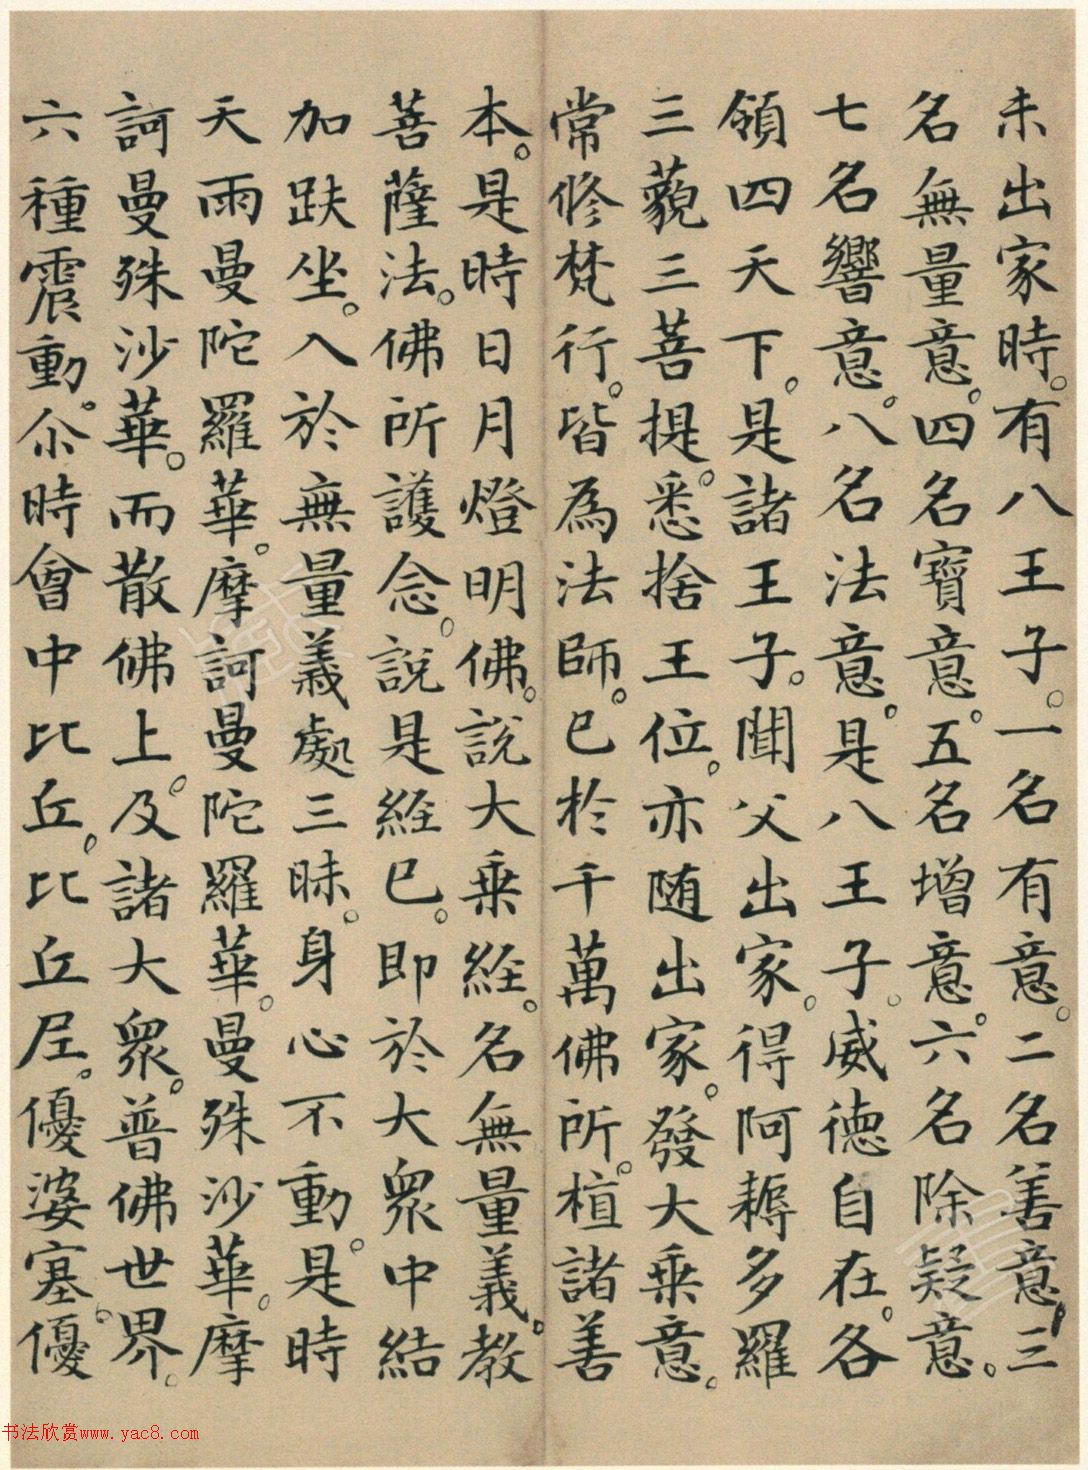 未出家時。有八王子。一名有意。二名善意。三
名無量意。四名寶意。五名增意。六名除疑意。
七名響意。八名法意。是八王子。威德自在。各
領四天下。是諸王子。聞父出家。得阿耨多羅
三藐三菩提。悉捨王位。亦随出家。發大乗意。
常修梵行。皆為法師。已於千萬佛所。植諸善
本。是時日月燈明佛。說大乗經。名無量義。教
菩薩法。佛所護念。說是經已。即於大眾中結
加趺坐。入於無量義處三昧。身心不動。是時
天雨曼陀羅華。摩訶曼陀羅華。曼殊沙華。摩
訶曼殊沙華。而散佛上。及諸大眾。普佛世界。
六種震動。尒時會中比丘。比丘尼。優婆塞。優
书法欣赏www.yac8.com